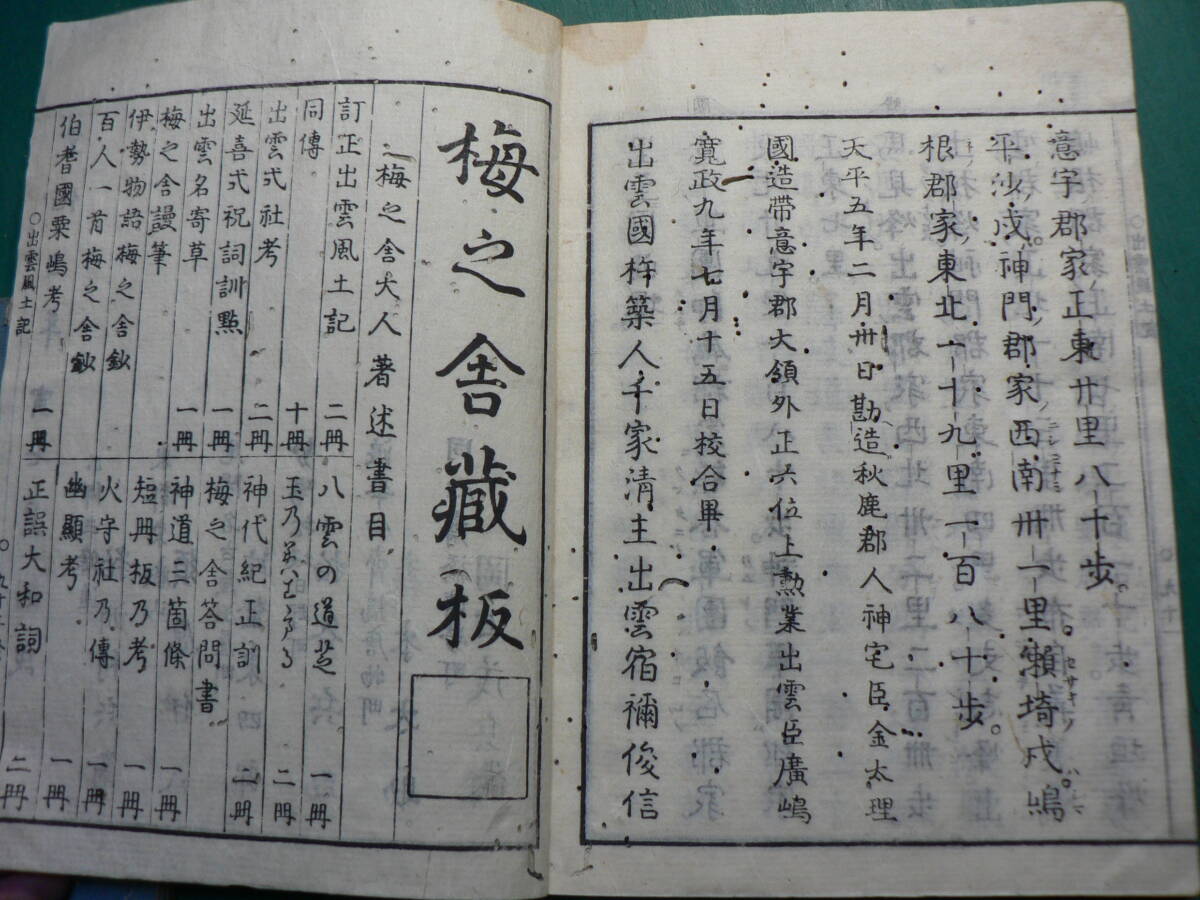 意宇郡家正東卅里八十歩。
平沙戍。神門郡家西南卅一里。瀬埼戍。嶋
根郡家東北一十九里一百八十歩。
天平五年二月卅日勘造秋鹿郡人神宅臣金太理
國造帶意宇郡大領外正六位上勲業出雲臣廣嶋
寛政九年七月十五日校合畢
出雲國杵築人千家清主出雲宿禰俊信
梅之舎藏板
梅之舎大人著述書目
訂正出雲風土記 二冊
同傳 十冊
出雲式社考 二冊
延喜式祝詞訓點 一冊
出雲名寄草 一冊
梅之舎謾筆
伊勢物語梅之舎鈔
百人一首梅之舎鈔
伯耆國粟嶋考 一冊
八雲の道芝 一冊
玉乃 二冊
神代紀正訓 二冊
梅之舎答問書
神道三箇條 一冊
短冊板乃考 一冊
火守社乃傳 一冊
幽顯考 一冊
正誤大和詞 二冊
○出雲風土記